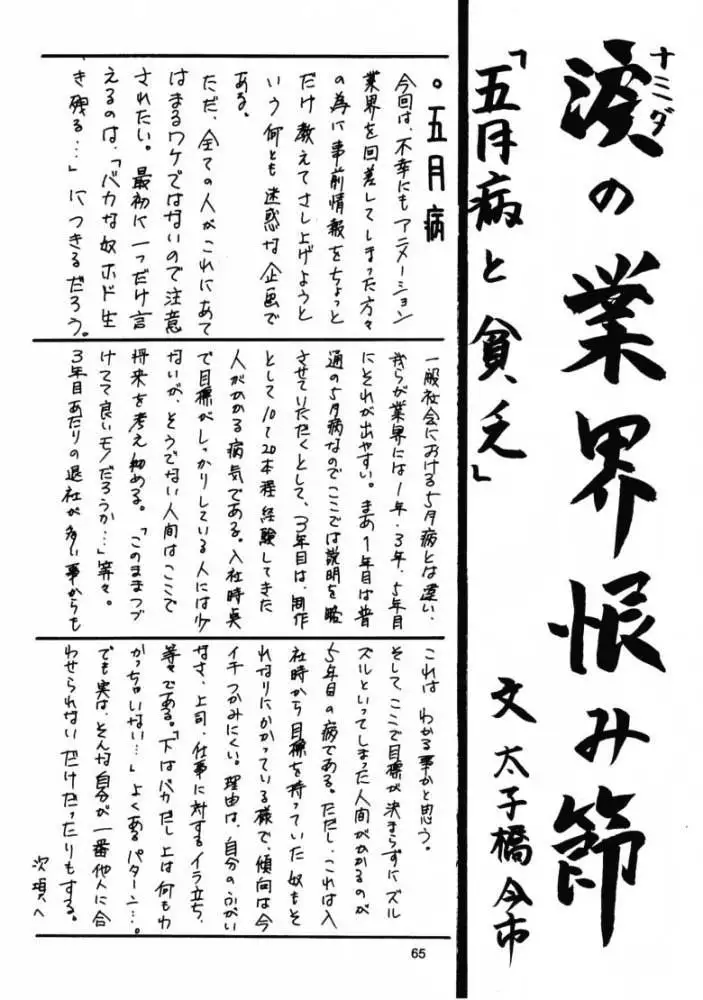 涙の業界恨み節
ナミダ
「五月病と貧乏」
文 太子橋今市
。五月病
今回は、不幸にもアニメーション
業界を回差してしまった方々
の為に事前情報をちょっと
だけ教えてさし上げようと
いう何とも迷惑な企画で
ある。
ただ、全ての人がこれにあて
はまるワケではないので注意
されたい。最初に一つだけ言
えるのは、「バカな奴ホド生
き残る…」につきるだろう。
一般社会における5月病とは違い、
我らが業界には1年・3年、5年目
にそれが出やすい。まあ1年目は普
通の5月病なのでここでは説明を略
させていただくとして、3年目は、制作
として10て20本程経験してきた
人がかかる病気である。入社時点
で目標がしっかりしている人には少
ないが、そうでない人間はここで
将来を考え始める。「このままつづ
けてて良いモノだろうか…」等々。
3年目あたりの退社が多い事からも
これは わかる事かと思う。
そしてここで目標が決まらずにズル
ズルといってしまった人間がかかるのが
5年目の病である。ただし、これは入
社時から目標を持っていた奴もそ
れなりにかかっている様で、傾向は今
イチつかみにくい。理由は、自分のふがい
なさ、上司、仕事に対するイラ立ち、
等々である。「下はバカだし上は何もわ
かっちゃいない…」よくあるパターン…。
でも実は、そんな自分が一番他人に合
わせられないだけだったりもする。
次項へ
65